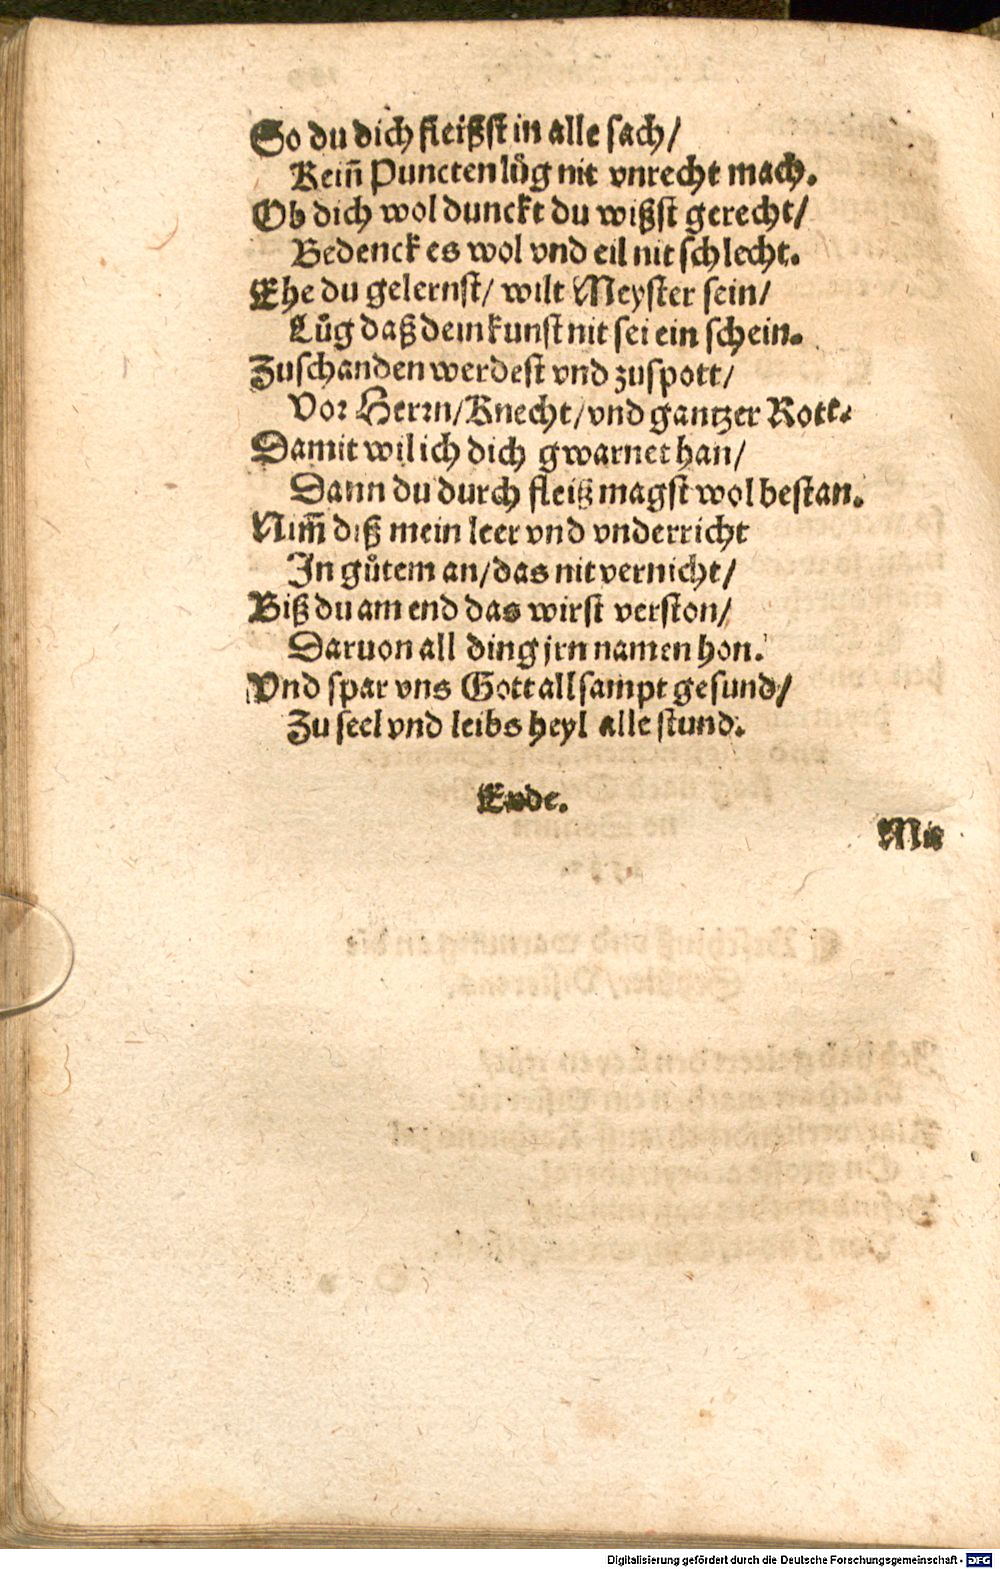 So du dich fleißst in alle sach/
Kein̄ Puncten lůg nit vnrecht mach.
Ob dich wol dunckt du wißst gerecht/
Bedenck es wol vnd eil nit schlecht.
Ehe du gelernst/ wilt Meyster sein/
Lůg daß dein kunst nit sei ein schein.
Zuschanden werdest vnd zuspott/
Vor Herrn/Knecht/vnd gantzer Rott.
Damit wil ich dich gwarnet han/
Dann du durch fleiß magst wol bestan.
Nim̄ diß mein leer vnd vnderricht
In gůtem an/das nit vernicht/
Biß du am end das wirst verston/
Daruon all ding jrn namen hon.
Vnd spar vns Gott allsampt gesund/
Zu seel vnd leibs heyl alle stund.
Ende.
Mit
Digitalisierung gefördert durch die Deutsche Forschungsgemeinschaft - DFG